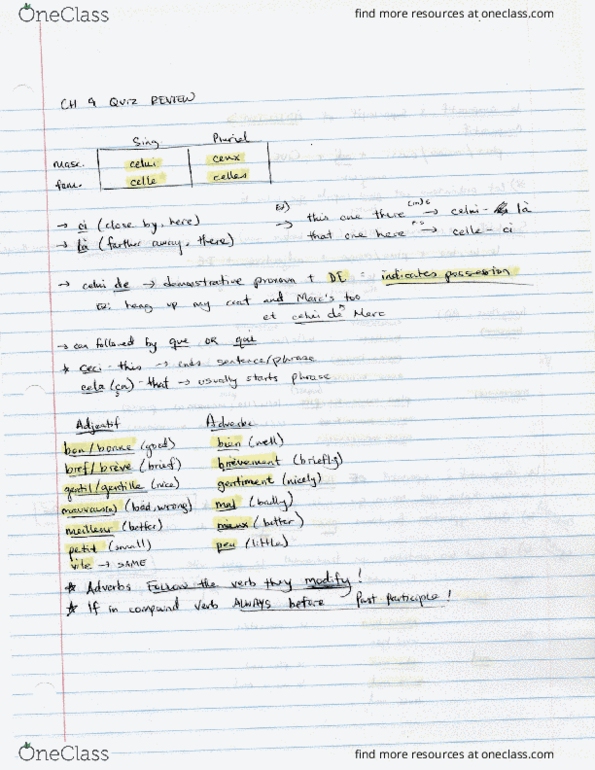 OneClass
find more resources at oneclass.com
CH 9 QUIZ REVIEW
Sing Pluriel
masc. celui ceux
fem. celle celles
→ ci (close by, here)
→ là (farther away, there)
Ex) → this one there → celui- là
that one here → celle-ci
→ celui de → demonstrative pronoun + DE = indicates possession
ex: hang up my coat and Marc's too
et celui de Marc
→ can followed by que OR qui
* ceci - this → ends sentence/phrase
cela (ça) - that → usually starts phrase
Adjectif Adverbe
bon/bonne (good) bien (well)
bref/brève (brief) brèvement (briefly)
gentil/gentille (nice) gentiment (nicely)
mauvais(e) (bad, wrong) mal (badly)
meilleur (better) mieux (better)
petit (small) peu (little)
vite → SAME
* Adverbs Follow the verb they modify!
* If in compound verb ALWAYS before Past Participle!
OneClass
find more resources at oneclass.com